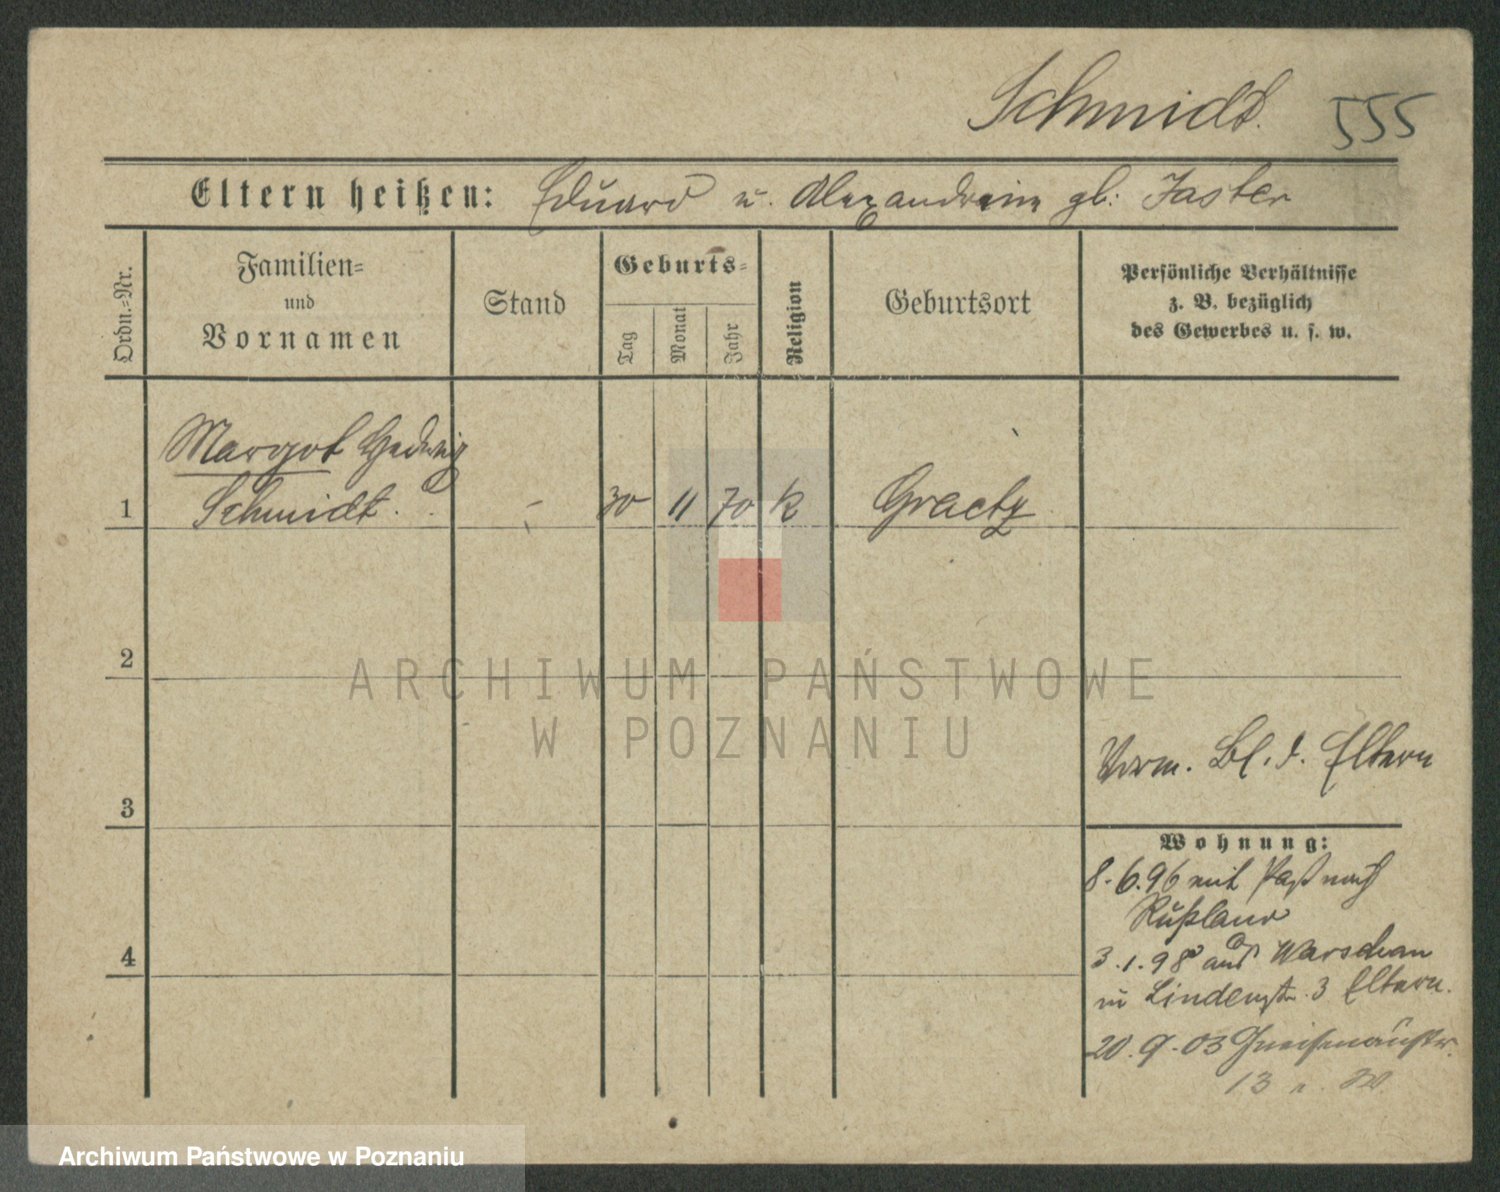 Schmidt. 555
Eltern heißen: Eduard u. Alexandrine gb: Jaster
Ordn.=Nr.
Familien=
und
Vornamen
Stand
Geburts=
Tag
Monat
Jahr
Religion
Geburtsort
Persönliche Verhältnisse
z. B. bezüglich
des Gewerbes u. s. w.
Margot Hedwig
1 Schmidt. - 30 11 70 k Graetz
2
ARCHIWUM PAŃSTWOWE
W POZNANIU
Vorm. Bl. d. Eltern
3
Wohnung:
8.6.96 mit Paß nach
Rußland
3.1.98 aus Warschau
4
in Lindenstr. 3 Eltern.
20.9.03 Gneisenaustr.
13
Archiwum Państwowe w Poznaniu